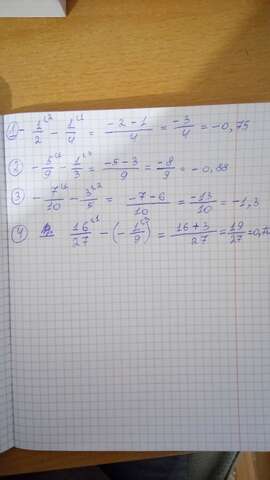 ① - 1/2 - 1/4 = -2-1/4 = -3/4 = -0,75
② - 5/9 - 1/3 = -5-3/9 = -8/9 = -0,88
③ - 7/10 - 3/5 = -7-6/10 = -13/10 = -1,3
④ 16/27 - (- 1/9) = 16+3/27 = 19/27 = 0,7